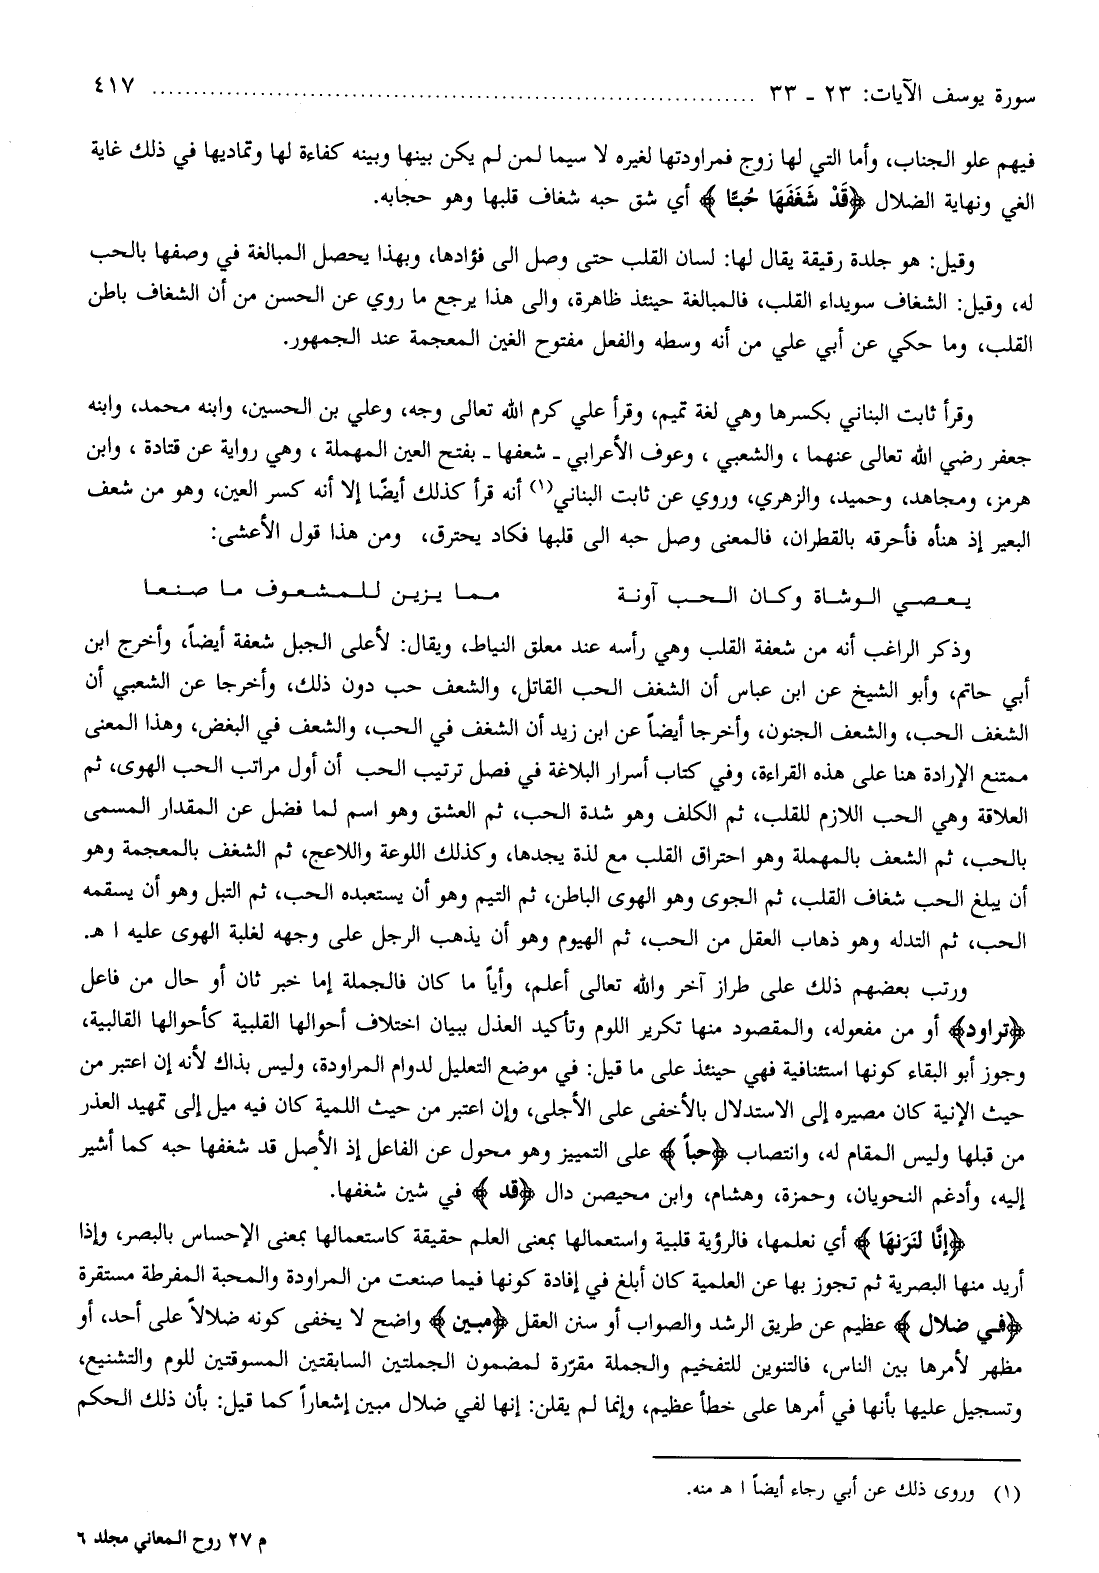 سورة يوسف الآيات: ٢٣ ـ ٣٣ ................................................................ ٤١٧
فيهم علو الجناب، وأما التي لها زوج فمراودتها لغيره لا سيما لمن لم يكن بينها وبينه كفاءة لها وتماديها في ذلك غاية
الغي ونهاية الضلال ﴿قَدْ شَغَفَهَا حُبًّا﴾ أي شق حبه شغاف قلبها وهو حجابه.
وقيل: هو جلدة رقيقة يقال لها: لسان القلب حتى وصل الى فؤادها، وبهذا يحصل المبالغة في وصفها بالحب
له، وقيل: الشغاف سويداء القلب، فالمبالغة حينئذ ظاهرة، والى هذا يرجع ما روي عن الحسن من أن الشغاف باطن
القلب، وما حكي عن أبي علي من أنه وسطه والفعل مفتوح الغين المعجمة عند الجمهور.
وقرأ ثابت البناني بكسرها وهي لغة تميم، وقرأ علي كرم الله تعالى وجه، وعلي بن الحسين، وابنه محمد، وابنه
جعفر رضي الله تعالى عنهما ، والشعبي ، وعوف الأعرابي ـ شعفها ـ بفتح العين المهملة ، وهي رواية عن قتادة ، وابن
هرمز، ومجاهد، وحميد، والزهري، وروي عن ثابت البناني(١) أنه قرأ كذلك أيضًا إلا أنه كسر العين، وهو من شعف
البعير إذ هنأه فأحرقه بالقطران، فالمعنى وصل حبه الى قلبها فكاد يحترق، ومن هذا قول الأعشى:
يعصي الوشاة وكان الحب آونة مما يزين للمشعوف ما صنعا
وذكر الراغب أنه من شعفة القلب وهي رأسه عند معلق النياط، ويقال: لأعلى الجبل شعفة أيضاً، وأخرج ابن
أبي حاتم، وأبو الشيخ عن ابن عباس أن الشغف الحب القاتل، والشعف حب دون ذلك، وأخرجا عن الشعبي أن
الشغف الحب، والشعف الجنون، وأخرجا أيضاً عن ابن زيد أن الشغف في الحب، والشعف في البغض، وهذا المعنى
ممتنع الإرادة هنا على هذه القراءة، وفي كتاب أسرار البلاغة في فصل ترتيب الحب أن أول مراتب الحب الهوى، ثم
العلاقة وهي الحب اللازم للقلب، ثم الكلف وهو شدة الحب، ثم العشق وهو اسم لما فضل عن المقدار المسمى
بالحب، ثم الشعف بالمهملة وهو احتراق القلب مع لذة يجدها، وكذلك اللوعة واللاعج، ثم الشغف بالمعجمة وهو
أن يبلغ الحب شغاف القلب، ثم الجوى وهو الهوى الباطن، ثم التيم وهو أن يستعبده الحب، ثم التبل وهو أن يسقمه
الحب، ثم التدله وهو ذهاب العقل من الحب، ثم الهيوم وهو أن يذهب الرجل على وجهه لغلبة الهوى عليه ا هـ.
ورتب بعضهم ذلك على طراز آخر والله تعالى أعلم، وأياً ما كان فالجملة إما خبر ثان أو حال من فاعل
﴿تراود﴾ أو من مفعوله، والمقصود منها تكرير اللوم وتأكيد العذل ببيان اختلاف أحوالها القلبية كأحوالها القالبية،
وجوز أبو البقاء كونها استئنافية فهي حينئذ على ما قيل: في موضع التعليل لدوام المراودة، وليس بذاك لأنه إن اعتبر من
حيث الإنية كان مصيره إلى الاستدلال بالأخفى على الأجلى، وإن اعتبر من حيث اللمية كان فيه ميل إلى تمهيد العذر
من قبلها وليس المقام له، وانتصاب ﴿حباً﴾ على التمييز وهو محول عن الفاعل إذ الأصل قد شغفها حبه كما أشير
إليه، وأدغم النحويان، وحمزة، وهشام، وابن محيصن دال ﴿قد﴾ في شين شغفها.
﴿إِنَّا لَنَرَٰىهَا﴾ أي نعلمها، فالرؤية قلبية واستعمالها بمعنى العلم حقيقة كاستعمالها بمعنى الإحساس بالبصر، وإذا
أريد منها البصرية ثم تجوز بها عن العلمية كان أبلغ في إفادة كونها فيما صنعت من المراودة والمحبة المفرطة مستقرة
﴿في ضلال﴾ عظيم عن طريق الرشد والصواب أو سنن العقل ﴿مبين﴾ واضح لا يخفى كونه ضلالاً على أحد، أو
مظهر لأمرها بين الناس، فالتنوين للتفخيم والجملة مقرّرة لمضمون الجملتين السابقتين المسوقتين للوم والتشنيع،
وتسجيل عليها بأنها في أمرها على خطأ عظيم، وإنما لم يقلن: إنها لفي ضلال مبين إشعاراً كما قيل: بأن ذلك الحكم
(١) وروى ذلك عن أبي رجاء أيضاً ا هـ منه.
م ٢٧ روح المعاني مجلد ٦